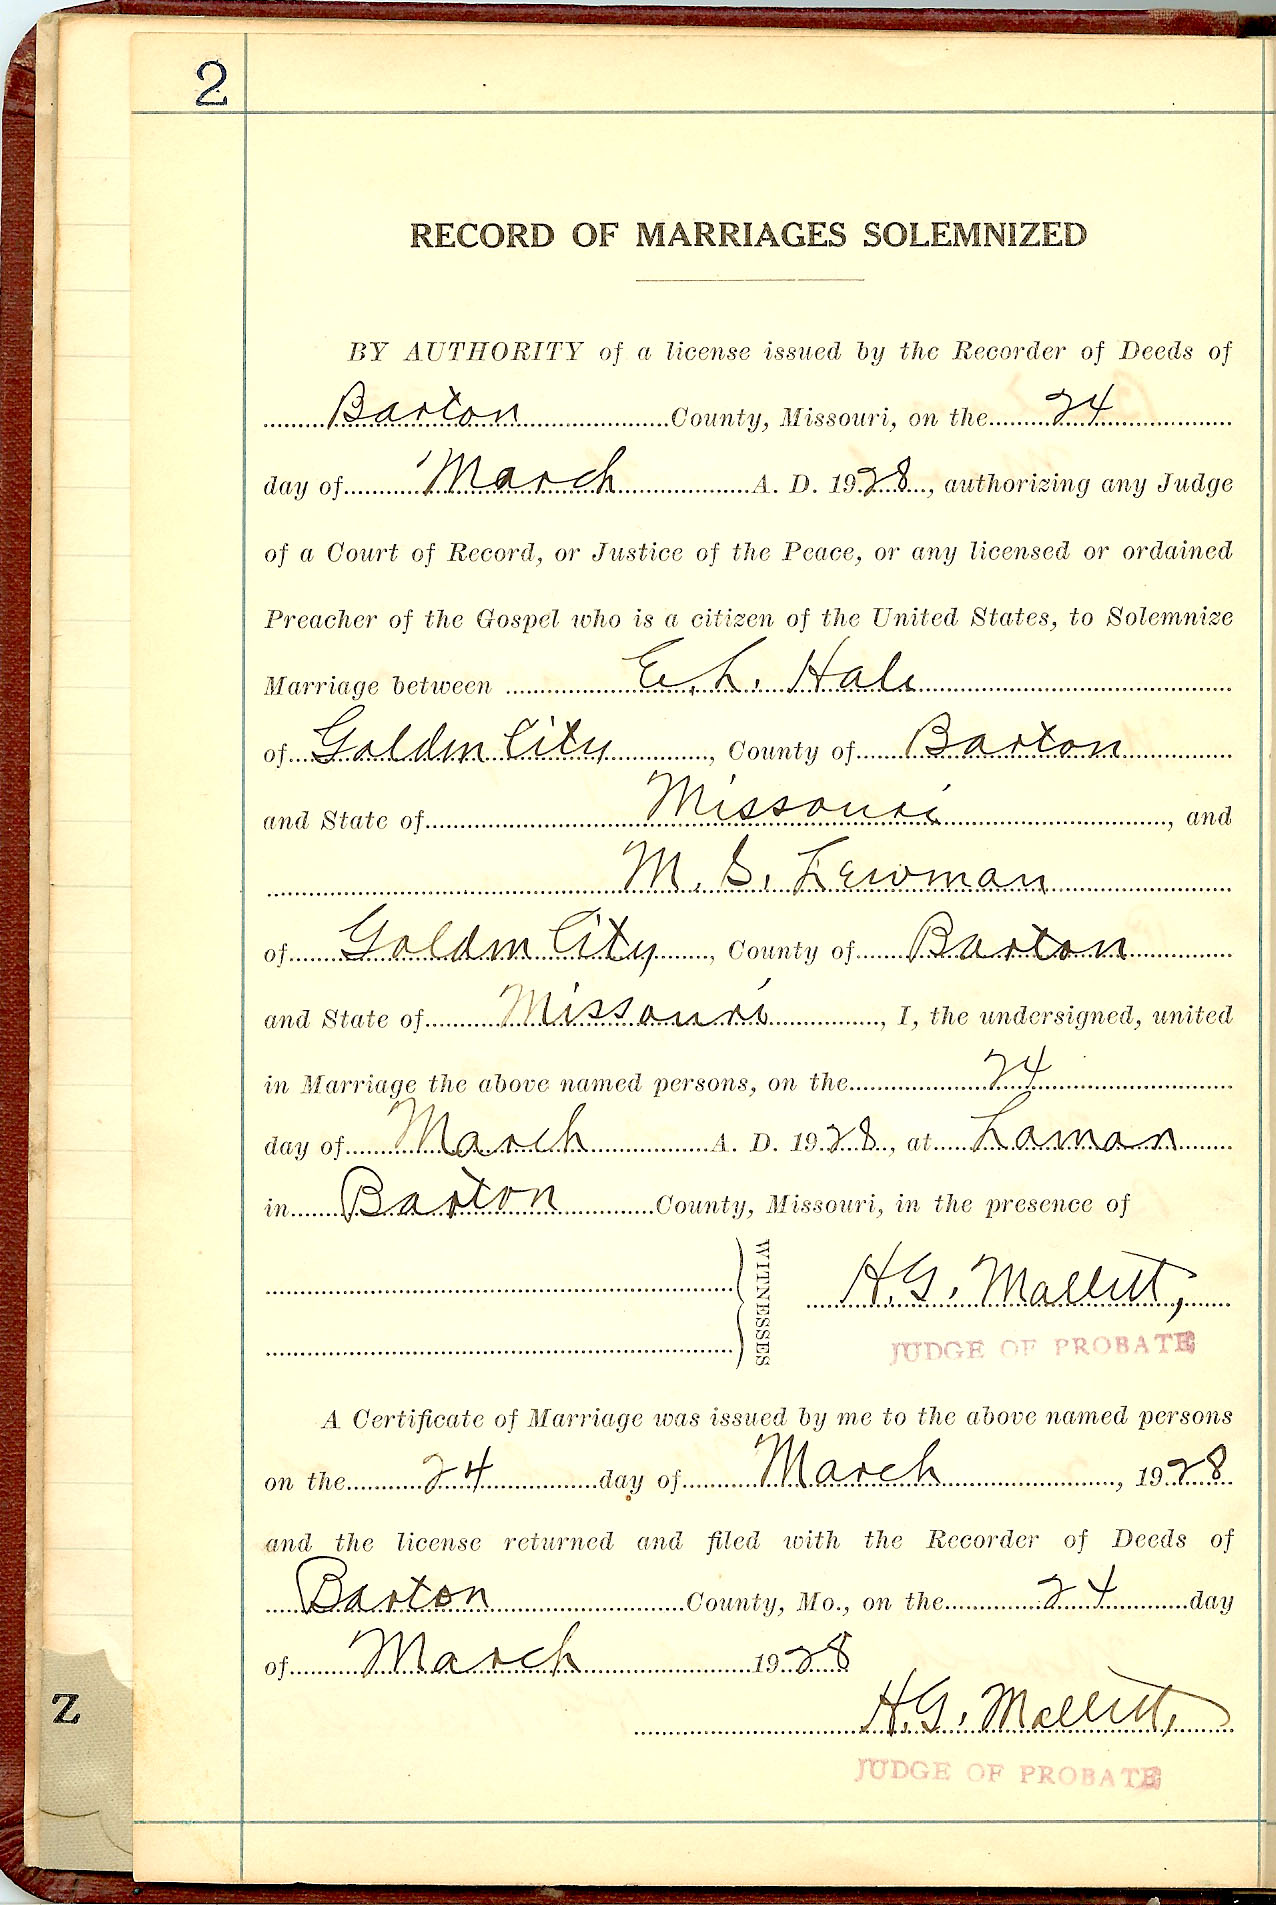 2
RECORD OF MARRIAGES SOLEMNIZED
BY AUTHORITY of a license issued by the Recorder of Deeds of
Barton County, Missouri, on the 24
day of March A. D. 1928, authorizing any Judge
of a Court of Record, or Justice of the Peace, or any licensed or ordained
Preacher of the Gospel who is a citizen of the United States, to Solemnize
Marriage between E. L. Hale
of Golden City, County of Barton
and State of Missouri, and
M. S. Lewman
of Golden City, County of Barton
and State of Missouri, I, the undersigned, united
in Marriage the above named persons, on the 24
day of March A. D. 1928, at Laman
in Barton County, Missouri, in the presence of
WITNESSES
H. G. Mallett,
JUDGE OF PROBATE
A Certificate of Marriage was issued by me to the above named persons
on the 24 day of March, 1928
and the license returned and filed with the Recorder of Deeds of
Barton County, Mo., on the 24 day
of March 1928
H. G. Mallett,
JUDGE OF PROBATE
Z